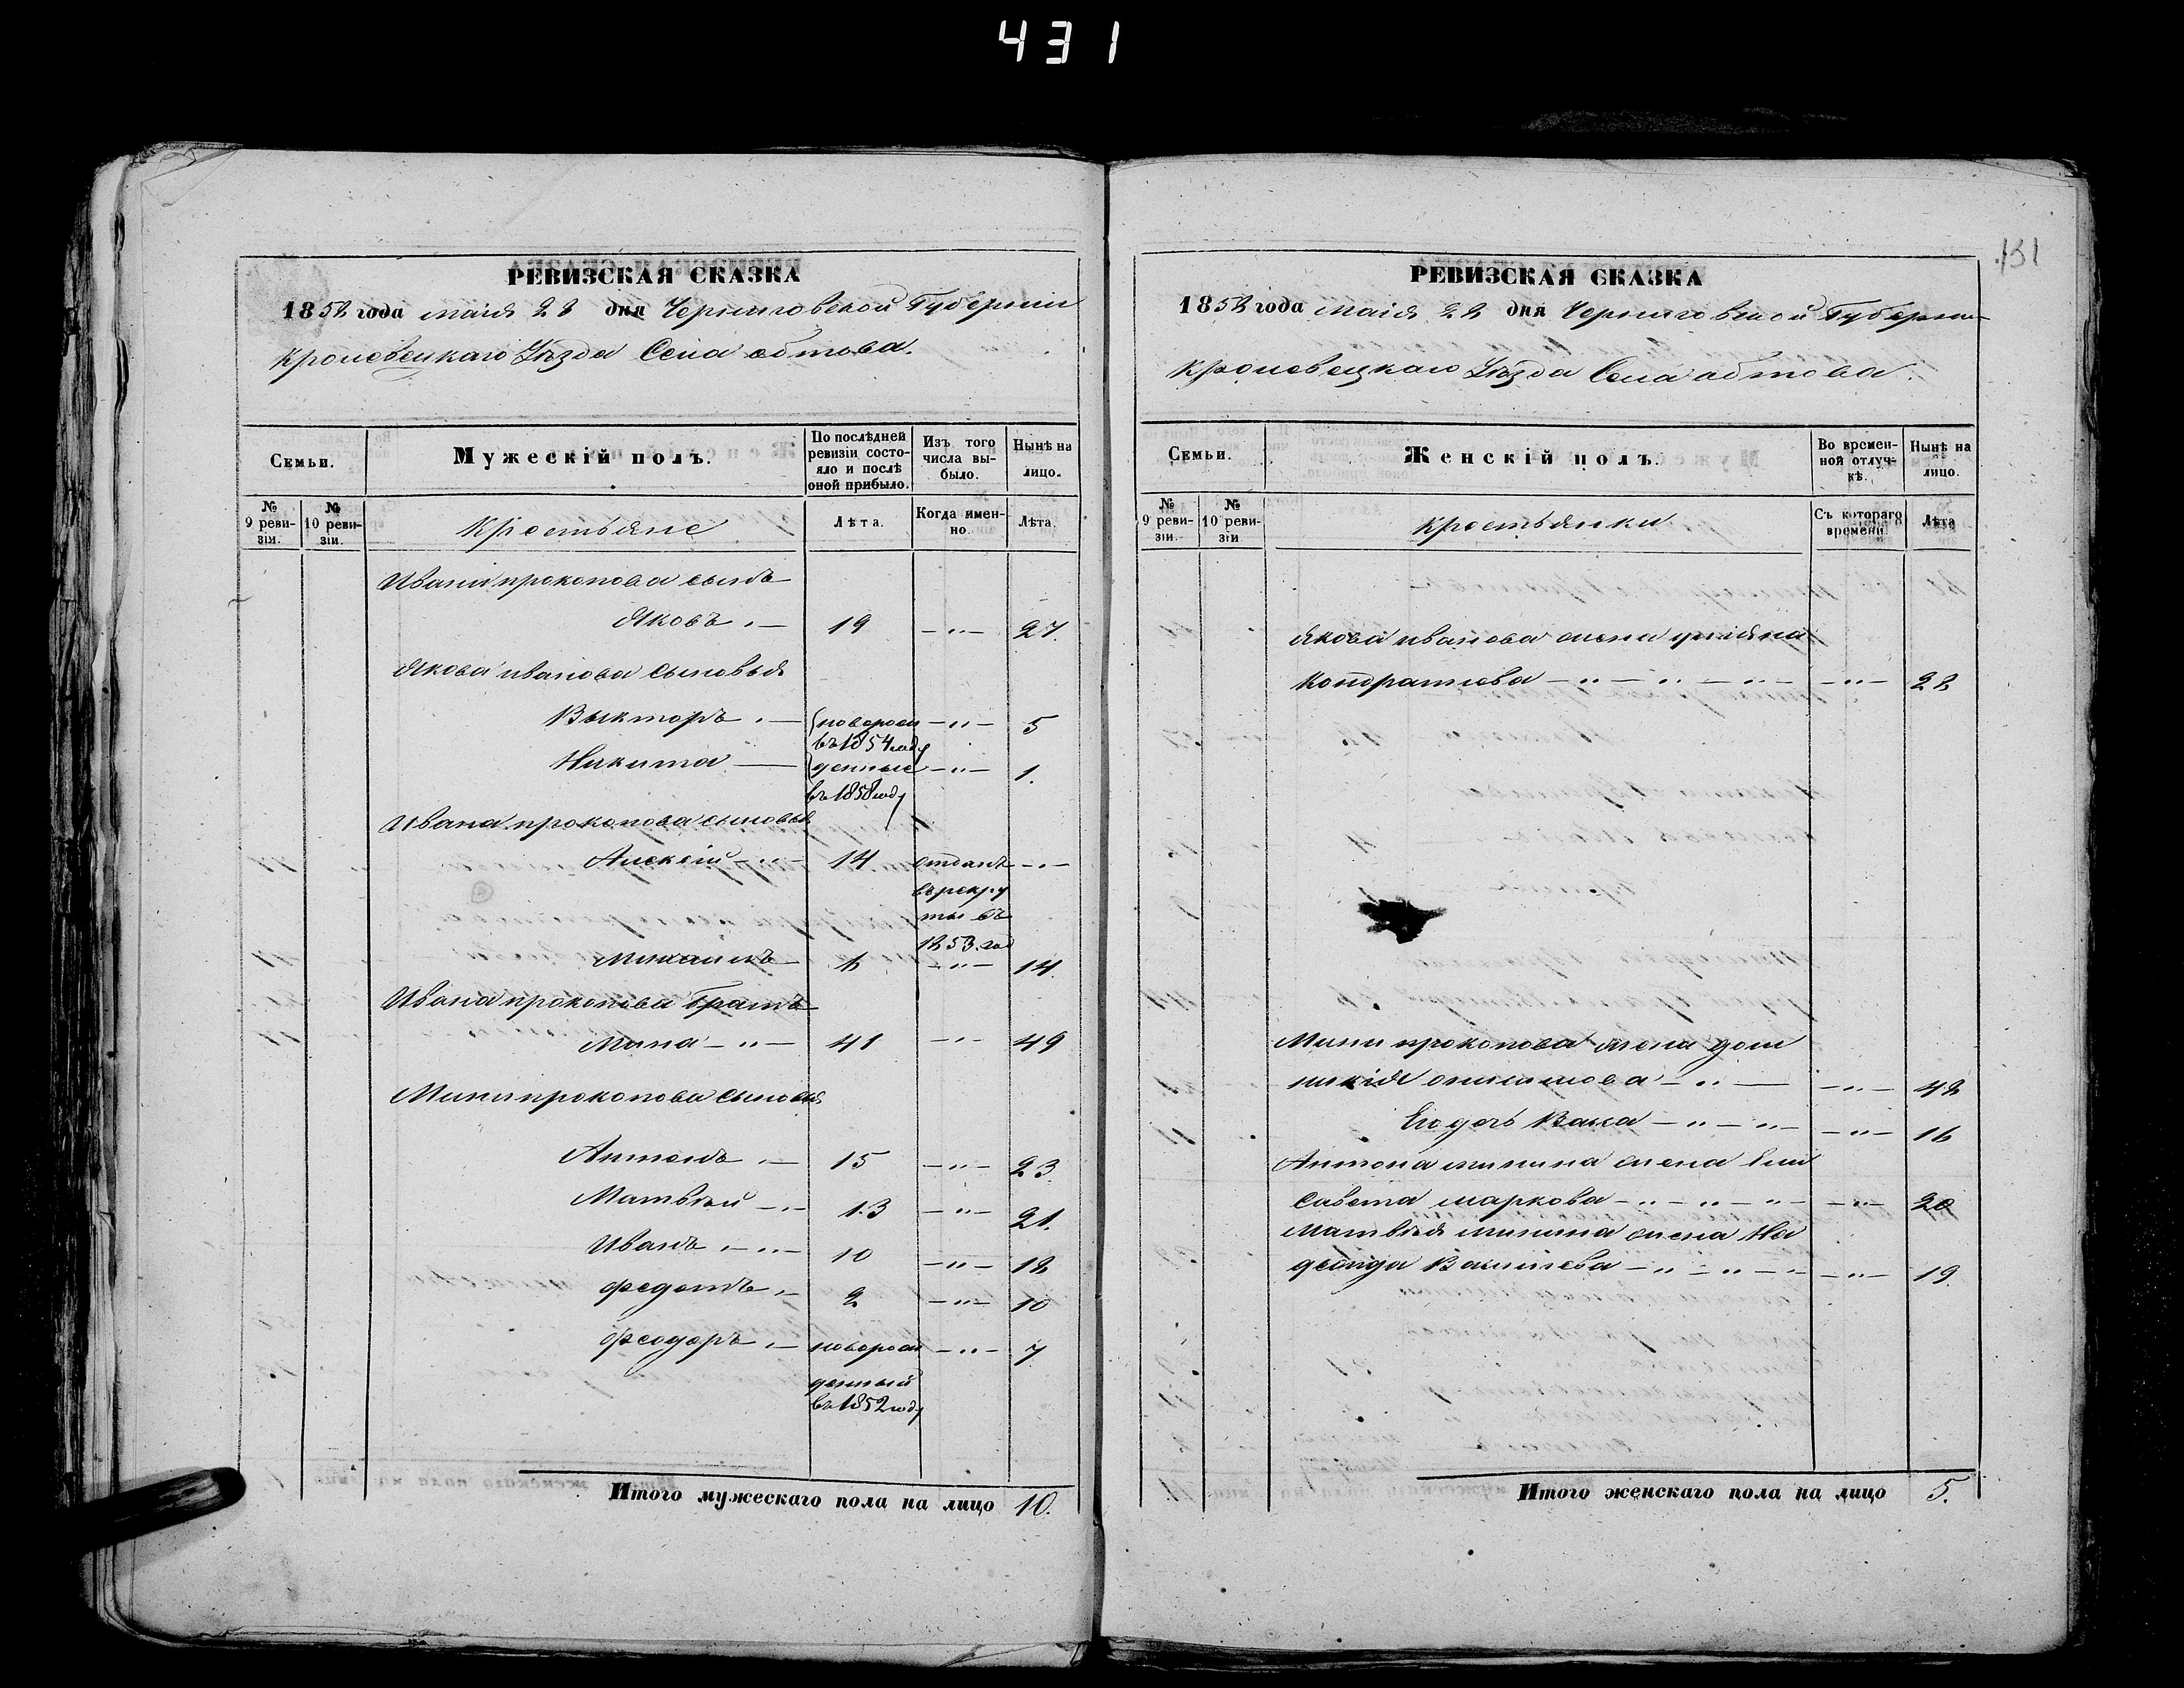 431
131
РЕВИЗСКАЯ СКАЗКА
1858 года маія 28 дня Черниговской Губерніи
Кролевецкаго Уѣзда Села обтова.
Семьи.
Мужескій полъ.
По послѣдней ревизіи состояло и послѣ оной прибыло.
Изъ того числа выбыло.
Нынѣ на лицо.
№ 9 ревизіи.
№ 10 ревизіи.
Крестьяне
Лѣта.
Когда именно.
Лѣта.
Ивана прокопова сынъ
Яковъ 19 — " — 27.
Якова иванова сыновья
Выкторъ новорож — " — 5
въ 1854 году
Никита денные — " — 1.
въ 1858 году
Ивана прокопова сыновья
Алексій — " — 14 отданъ — " —
въ рекру
ты въ
1853 год
Михаилъ 6 — " — 14.
Ивана прокопова братъ
Мина — " — 41 — " — 49
Мины прокопова сыновья
Антонъ 15 — " — 23.
Матвѣй 13 — " — 21.
Иванъ 10 — " — 18
Федотъ 2 — " — 10
Феодоръ новорож — " — 7
денный
въ 1852 году
Итого мужескаго пола на лицо 10.
РЕВИЗСКАЯ СКАЗКА
1858 года маія 28 дня Черниговской Губерніи
Кролевецкаго Уѣзда Села обтова.
Семьи.
Женскій полъ.
Во временной отлучкѣ.
Нынѣ на лицо.
№ 9 ревизіи.
№ 10 ревизіи
крестьянки
Съ котораго времени.
Лѣта
Якова иванова жена
Кондратова — " — " — " — — " — 28
Мины прокопова жена дом
никія онисимова — " — — " — 42
Его дочь Васса — " — " — — " — 16
Антона минина жена Ели
савета маркова — " — " — " — — " — 20
Матвѣя минина жена На
дежда Васильева — " — " — — " — 19.
Итого женскаго пола на лицо 5.